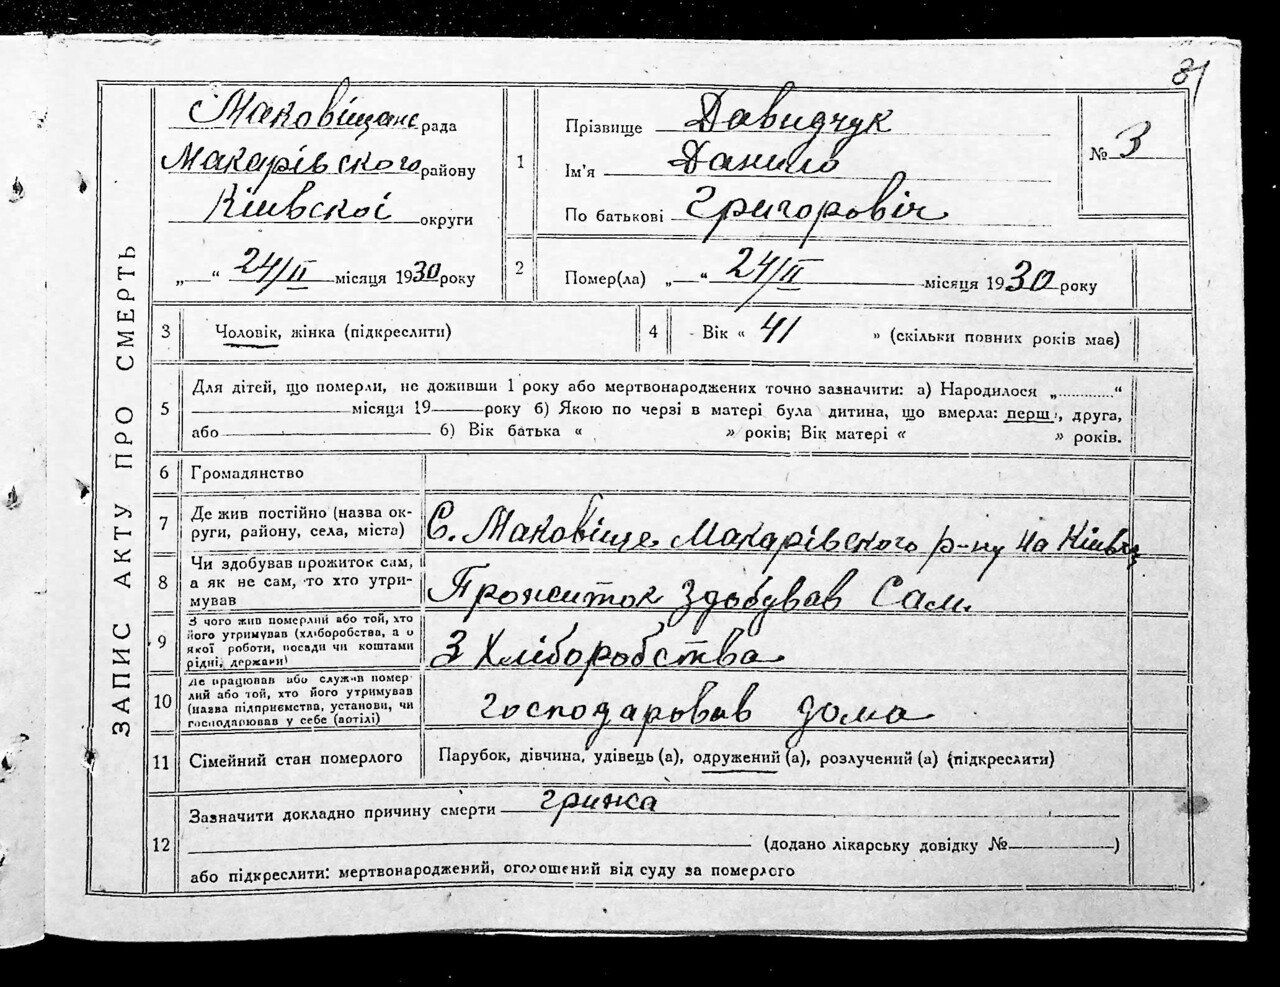 31
ЗАПИС АКТУ ПРО СМЕРТЬ
Маковіщанс рада
Макарівского району
Кіівскоі округи
„ “ 24/II місяця 1930 року
1
Прізвище Давидчук
Ім'я Данило
По батькові Григоровіч
№ 3
2
Помер(ла) „ “ 24/II місяця 1930 року
3 Чоловік, жінка (підкреслити)
4 Вік « 41 » (скільки повних років має)
5
Для дітей, що померли, не доживши 1 року або мертвонароджених точно зазначити: а) Народилося „............“
місяця 19 року б) Якою по черзі в матері була дитина, що вмерла: перша, друга,
або б) Вік батька « » років; Вік матері « » років.
6 Громадянство
7
Де жив постійно (назва ок-
руги, району, села, міста)
С. Маковіще Макарівского р-ну на Київщ
8
Чи здобував прожиток сам,
а як не сам, то хто утри-
мував
Прожиток здобував Сам.
9
З чого жив померлий або той, хто
його утримував (хліборобства, а о
якої роботи, посади чи коштами
рідні, держави)
З Хліборобства
10
Де працював або служив помер-
лий або той, хто його утримував
(назва підприємства, установи, чи
господарював у себе (вотілі)
господаровав дома
11 Сімейний стан померлого
Парубок, дівчина, удівець (а), одружений (а), розлучений (а) (підкреслити)
12
Зазначити докладно причину смерти грижа
(додано лікарську довідку № )
або підкреслити: мертвонароджений, оголошений від суду за померлого